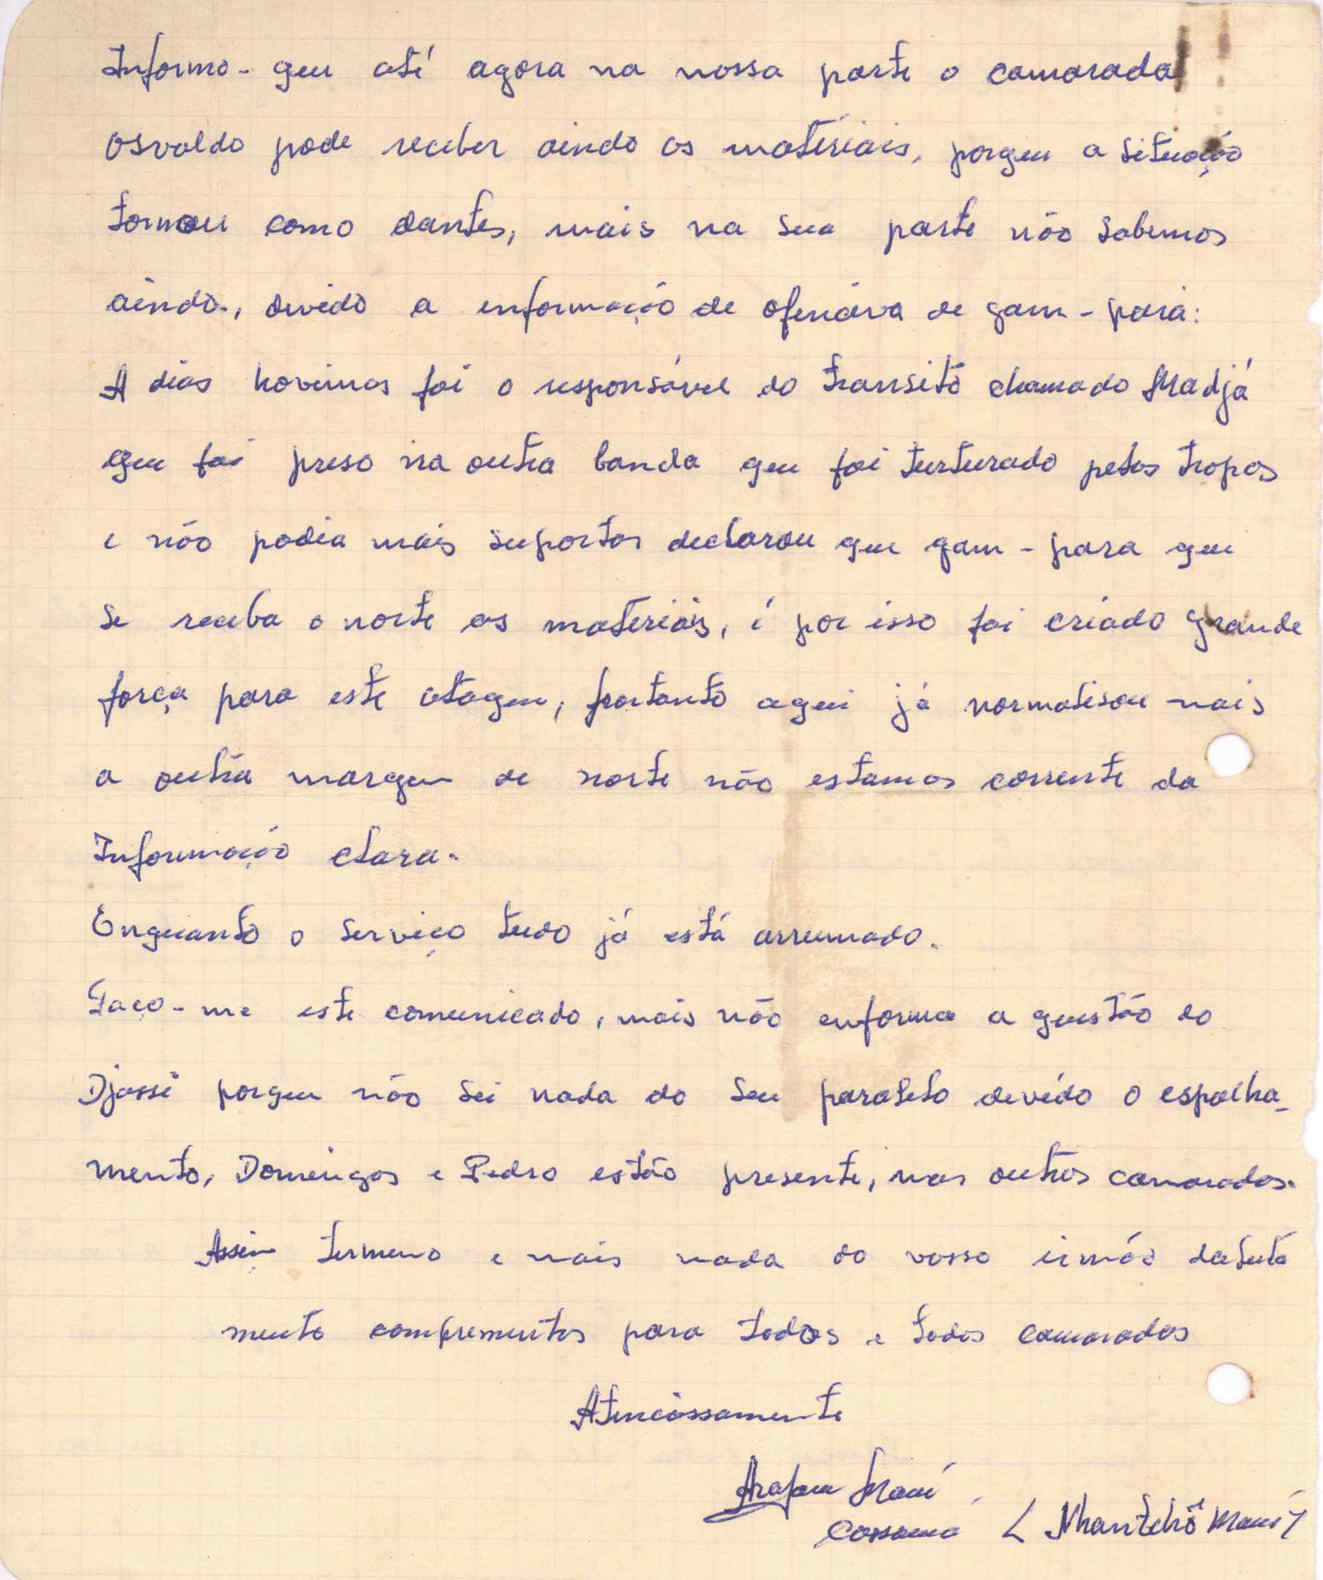 Informo-geu até agora na nossa parte o camarada
Osvaldo pode receber aindo os matériais, porgeu a situação
tornou como dantes, mais na sua parte não sabemos
aindo., devido a enformação de ofenciva de gam-pará:
A dias hovimos foi o responsável do transitó chamado Madjá
geu foi preso na outra banda geu foi turturado pelos tropos
e não podia mais suportar declarou geu gam-para geu
se receba o norte os materiáis, é por isso foi criado grande
força para este atageu, portanto agui já normalisou mais
a outra margeu de norte não estamos corrente da
Informação clara.
Enguanto o serviço tudo já está arrumado.
Faço-me este comunicado, mais não enforma a guestão do
Djassi porgeu não sei nada do seu paralelo devédo o espalha-
mento, Domingos e Pedro estão presente, nas outros camarados.
Assim termeno e mais nada do vosso irmão da luta
muito comprementos para todos e todos camarados
Atenciossamente
Arafam Mané
Cossamá ( Nhantchó Mané )